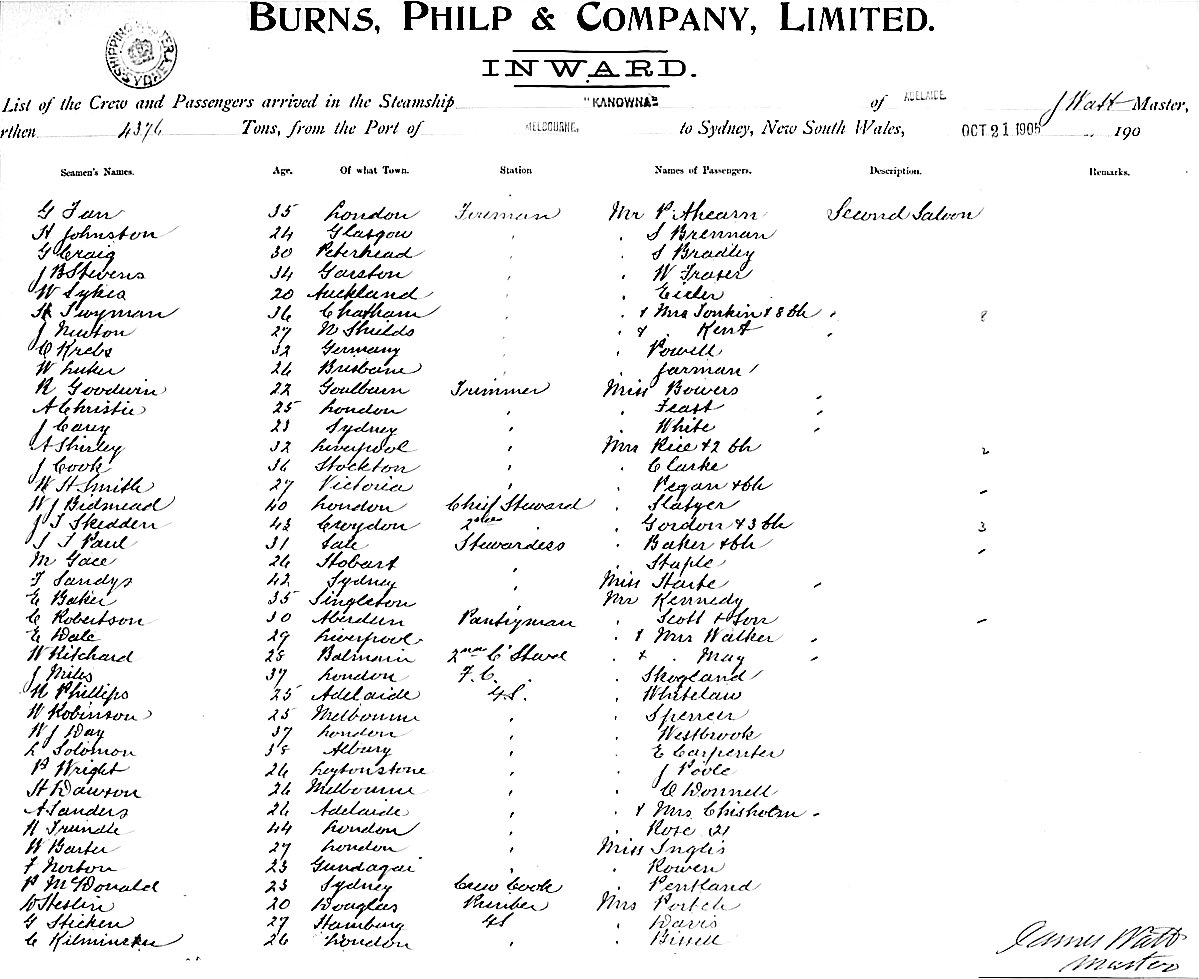 BURNS, PHILP & COMPANY, LIMITED.
SHIPPING MASTER SYDNEY
INWARD.
List of the Crew and Passengers arrived in the Steamship "KANOWNA" of ADELAIDE J Watt Master,
rthen 4376 Tons, from the Port of MELBOURNE. to Sydney, New South Wales, OCT 21 1905 190
Seamen's Names. Age. Of what Town. Station Names of Passengers. Description. Remarks.
G 35 London Fireman Mr P. Ahearn Second Saloon
H Johnston 24 Glasgow " " S Brennan
G Craig 30 Peterhead " " S Bradley
J B Stevens 34 Garston " " W Fraser
W Sykes 20 Auckland " "
H Twyman 36 Chatham " " & Mrs Tonkin & 8 Ch "
J Newton 27 N Shields " " & " Kent "
C Krebs 32 Germany " " Powell
W Luker 26 Brisbane " " Jarman
R Goodwin 22 Goulburn Trimmer Miss Bowers "
A Christie 25 London " " Feast "
J Carey 23 Sydney " " White "
A Shirley 32 Liverpool " Mrs Rice & 2 Ch 2
J Cook 36 Stockton " " Clarke
W H Smith 27 Victoria " " Pegan & Ch -
W J Bidmead 40 London Chief Steward " Slatyer
J T Skedden 43 Croydon 2nd " " Gordon & 3 Ch 3
S J Paul 31 Sale Stewardess " Baker & Ch -
M Gace 26 Hobart " " Staple
F Sandys 42 Sydney " Miss "
E Baker 35 Singleton " Mr Kennedy
C Robertson 30 Aberdeen Pantryman " Scott & Son -
E Dale 29 Liverpool " " & Mrs Walker "
W Pitchard 28 Balmain 2nd C' " & " May "
J Miles 37 London F. C. " Skogland
H Phillips 25 Adelaide 4S. " Whitelaw
W Robinson 25 Melbourne " " Spencer
W J Day 37 London " " Westbrook
L Solomon 38 Albury " " E Carpenter
P Wright 26 Leytonstone " " J Poole
H Dawson 26 Melbourne " " O Donnell
A Sanders 26 Adelaide " " & Mrs Chisholm "
H Trundle 44 London " " Rose (2)
W Barter 27 London " Miss Inglis
F Norton 23 Gundagai " " Rowen
P McDonald 23 Sydney Crew Cook " Pentland
D Heslin 20 Douglas Mrs Portch
G Sticken 27 Hamburg 4S " Davis
C Kilminster 26 London " "
James Watt
Master